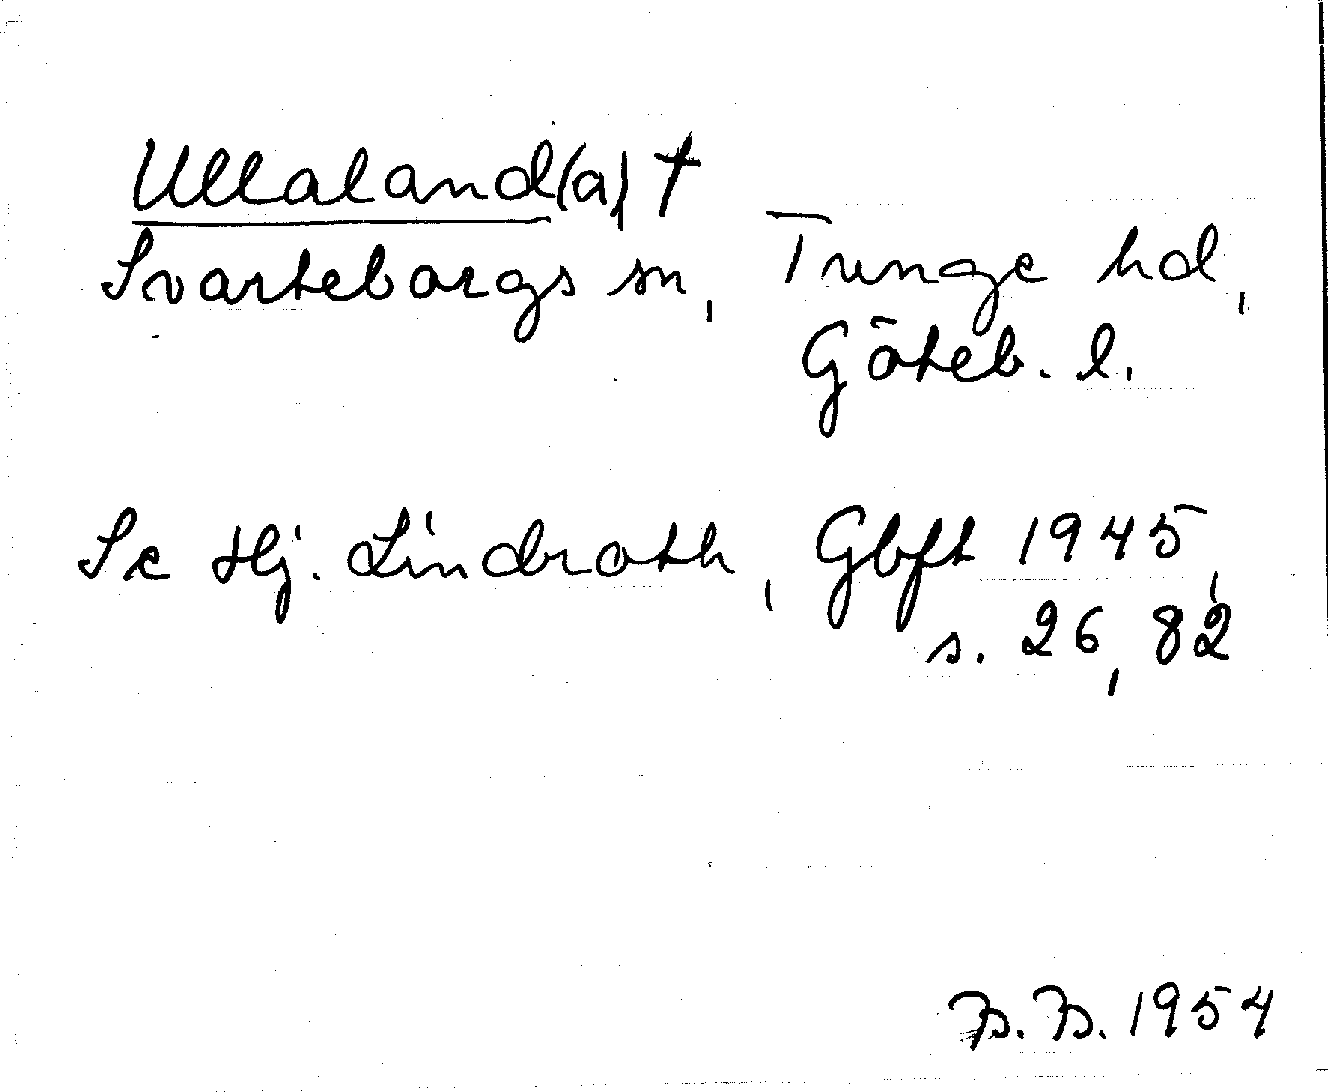 Ullaland(a) †
Svarteborgs sn, Tunge hd,
Göteb. l.
Se Hj. Lindroth, Gbft 1945,
s. 26, 82
B. B. 1954